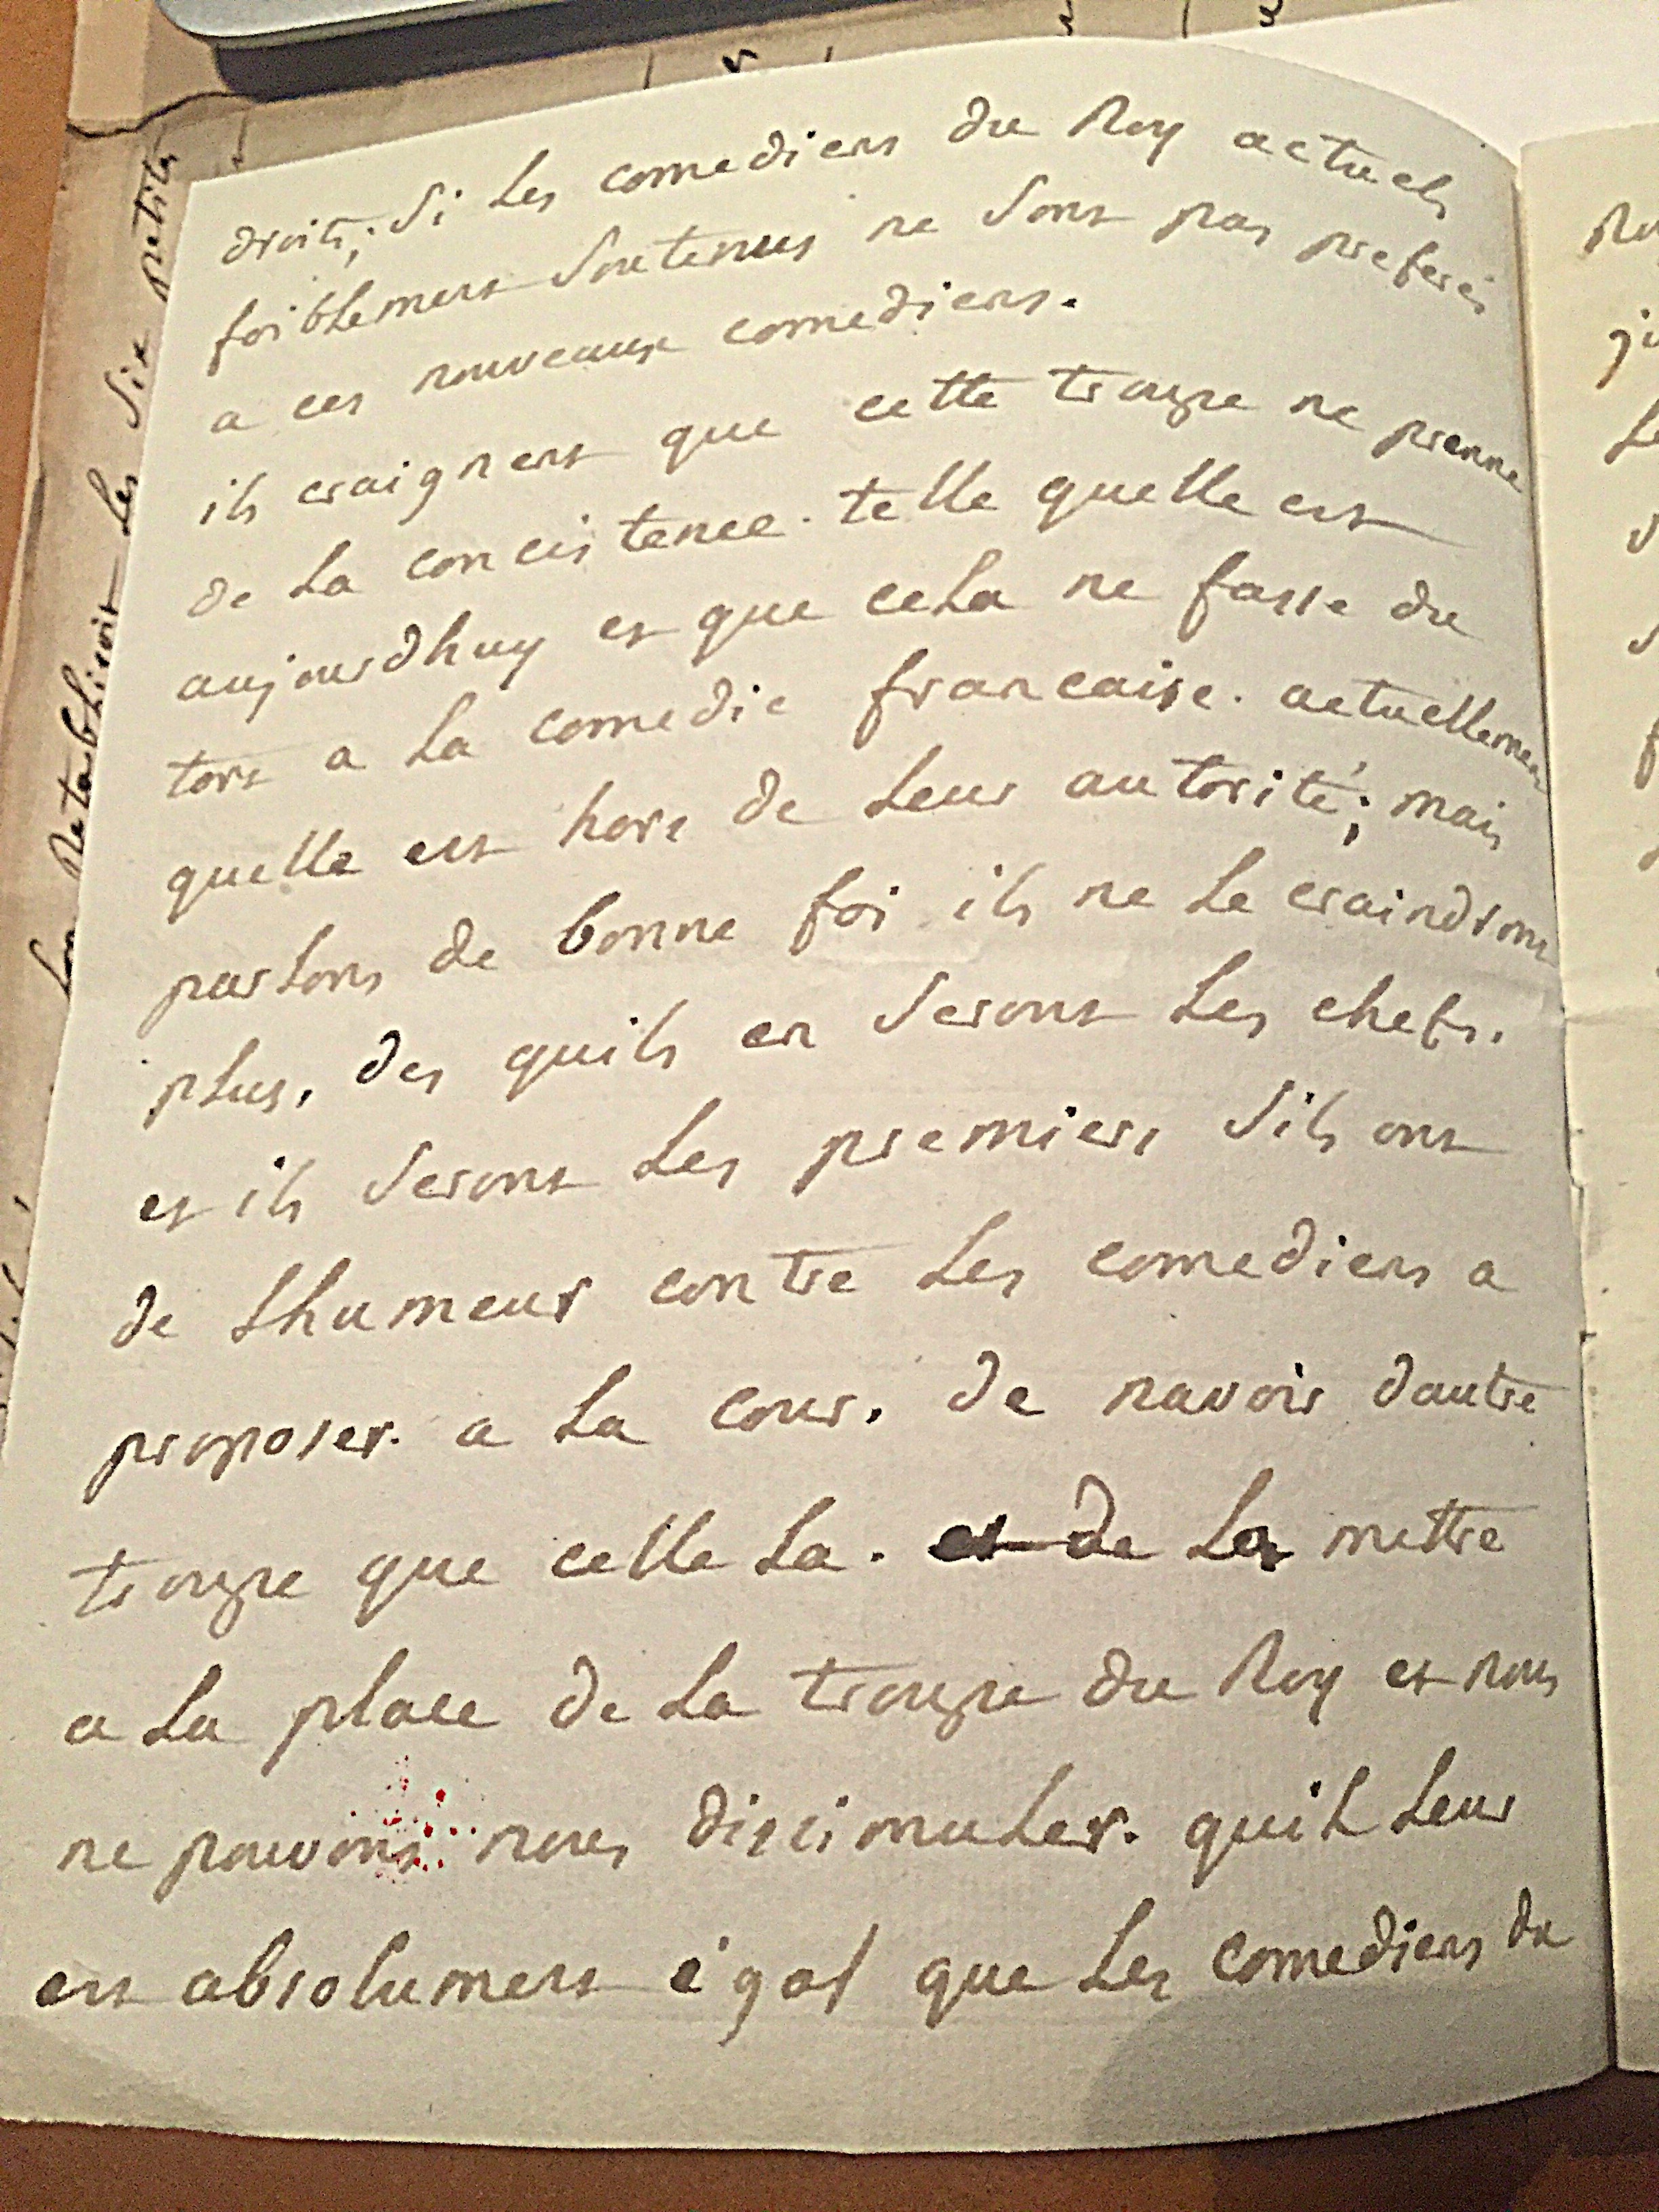 droits; si les comediens du Roy actuels
foiblement soutenus ne sont pas preferés
a ces nouveaux comediens.
ils craignent que cette troupe ne prenne
de la concistence. telle quelle est
aujourdhuy et que cela ne fasse du
tort a la comedie francaise. actuellement
quelle est hors de leur autorité; mais
parlons de bonne foi ils ne le craindront
plus, des quils en seront les chefs.
et ils seront les premiers sils ont
de lhumeur contre les comediens a
proposer. a la cour. de navoir dautre
troupe que celle la. et de la mettre
a la place de la troupe du Roy et nous
ne pouvons nous discimuler. quil leur
est absolument égal que les comediens du
les six petits
retablisoit